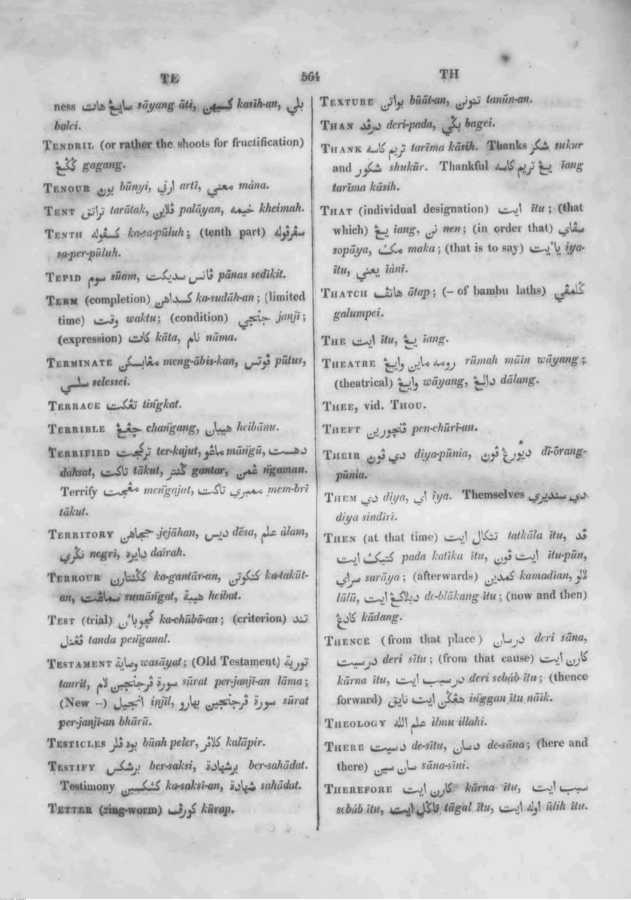 TE 564 TH
ness هات سايڠ sāyang āti, كسيهن kasih-an, بلي
balei.
TENDRIL (or rather the shoots for fructification)
ڬڬڠ gagang.
TENOUR بوڽي būnyi, ارتي artī, معني māna.
TENT تراتق tarātak, ڤلاين palāyan, خيمه kheimah.
TENTH كسڤوله ka-sa-pūluh; (tenth part) سڤرڤوله
sa-per-pūluh.
TEPID سوم sūam, ڤانس سديكت pānas sedikit.
TERM (completion) كسداهن ka-sudāh-an; (limited
time) وقت waktu; (condition) جنجي janjī;
(expression) كات kāta, نام nāma.
TERMINATE مڠابسكن meng-ābis-kan, ڤوتس pūtus,
سلسي selessei.
TERRACE تڠكت tiñgkat.
TERRIBLE چڠڠ chañgang, هيبان heibānu.
TERRIFIED تركجت ter-kajut, ماڠو māñgū, دهست
dahsat, تاكت tākut, ڬنتر gantar, ڠمن ñgaman.
Terrify مڠجت meñgajut, ممبري تاكت mem-brī
tākut.
TERRITORY ججاهن jejāhan, ديس dēsa, علم ālam,
نڬري negri, دايره dairah.
TERROUR كڬنتارن ka-gantār-an, كتكوتن ka-takūt-
an, سماڠت sumāñgat, هيبة heibat.
TEST (trial) كچوباٴن ka-chūbā-an; (criterion) تند
ڤڠنل tanda peñganal.
TESTAMENT وصاية wasāyat; (Old Testament) تورية
taurit, سورة ڤرجنجين لام sūrat per-janjī-an lāma;
(New –) انجيل injīl, سورة ڤرجنجين بهارو sūrat
per-janjī-an bhārū.
TESTICLES بوه ڤلر būah peler, كلاڤر kalāpir.
TESTIFY برسكسي ber-saksi, برشهادة ber-sahādat.
Testimony كسكسين ka-saksi-an, شهادة sahādat.
TETTER (zing-worm) كورڤ kūrap.
TEXTURE بواتن būāt-an, تنونن tanūn-an.
THAN درڤد deri-pada, بڬي bagei.
THANK تريم كاسه tarīma kāsih. Thanks شكر sukur
and شكور shukūr. Thankful يڠ تريم كاسه īang
tarīma kāsih.
THAT (individual designation) ايت ītu; (that
which) يڠ iang, نن nen; (in order that) سڤاي
sopāya, مك maka; (that is to say) يا ايت iya-
ītu, يعني iāni.
THATCH هاتف ātap; (– of bambu laths) ڬلمڤي
galumpei.
THE ايت ītu, يڠ īang.
THEATRE رومه ماين وايڠ rūmah māin wāyang;
(theatrical) وايڠ wāyang, دالڠ dālang.
THEE, vid. THOU.
THEFT ڤنچورين pen-chūri-an.
THEIR دي ڤون diya-pūnia, دي اورڠ ڤون dī-ōrang-
pūnia.
THEM دي diya, اي īya. Themselves دي سنديري
diya sindīrī.
THEN (at that time) تتكال ايت tatkāla ītu, ڤد
كتيك ايت pada katīka itu, ايت ڤون itu-pūn,
سراي surāya; (afterwards) كمدين kamadian, لالو
lālū, دبلاكڠ ايت de-blākang ītu; (now and then)
كادڠ kādang.
THENCE (from that place) درسان deri sāna,
درسيت deri sītu; (from that cause) كارن ايت
kārna ītu, درسبب ايت deri sebáb ītu; (thence
forward) هڠڬن ايت نايق iñggan itu nāik.
THEOLOGY علم الله ilmu illahi.
THERE دسيت de-sītu, دسان de-sāna; (here and
there) سان سين sāna-sīni.
THEREFORE كارن ايت kārna ītu, سبب ايت
sebáb itu, تاڬل ايت tāgal ītu, اوله ايت ūlih ītu.